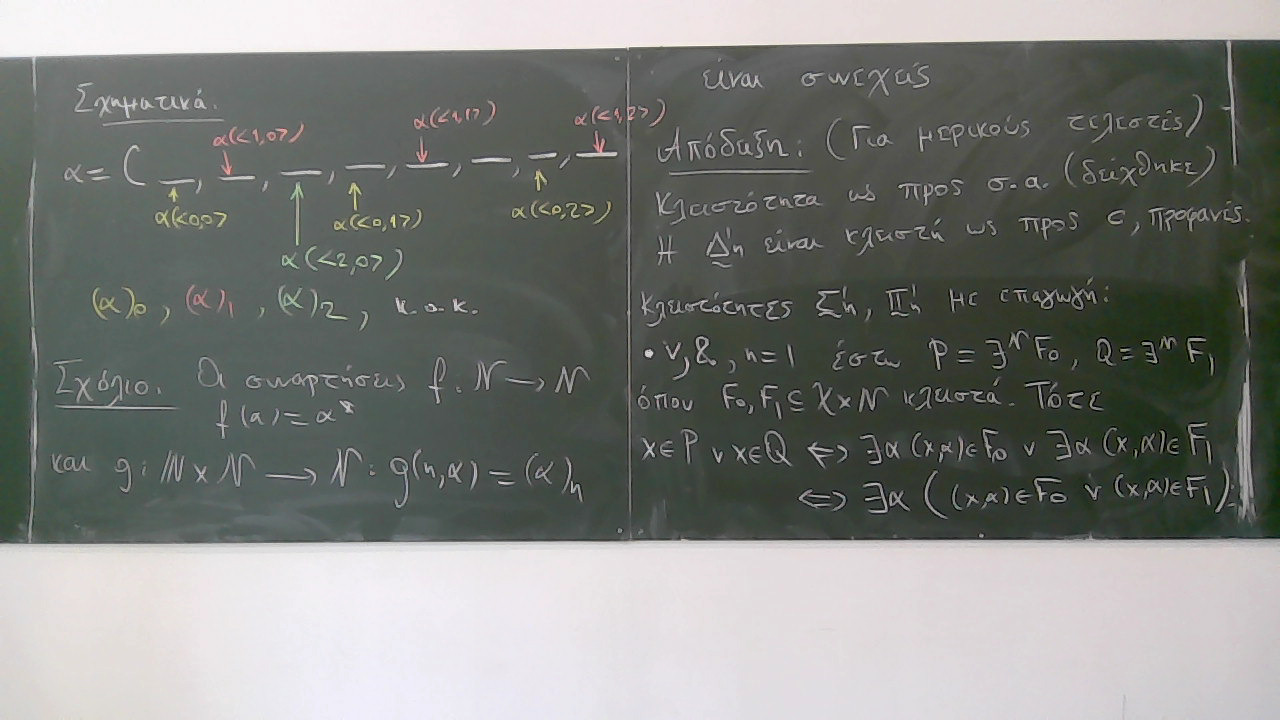 Σχηματικά.
α(<1,0>) α(<1,1>) α(<1,2>)
α = ( _, _, _, _, _, _, _, _
α(<0,0> α(<0,1>) α(<0,2>)
α(<2,0>)
(α)₀, (α)₁, (α)₂, κ.ο.κ.
Σχόλιο. Οι συναρτήσεις f: 𝒩 → 𝒩
f(α) = α*
και g: ℕ × 𝒩 → 𝒩 : g(n,α) = (α)ₙ
είναι συνεχείς
Απόδειξη: (Για μερικούς τελεστές)
Κλειστότητα ως προς σ.α. (δείχθηκε)
Η Δ¹ₙ είναι κλειστή ως προς c, προφανές.
Κλειστότητες Σ¹ₙ, Π¹ₙ με επαγωγή:
• ∨, &, n=1 έστω P = ∃^𝒩 F₀, Q = ∃^𝒩 F₁
όπου F₀, F₁ ⊆ 𝒳 × 𝒩 κλειστά. Τότε
x∈P ∨ x∈Q ⟺ ∃α (x,α)∈F₀ ∨ ∃α (x,α)∈F₁
⟺ ∃α ((x,α)∈F₀ ∨ (x,α)∈F₁).